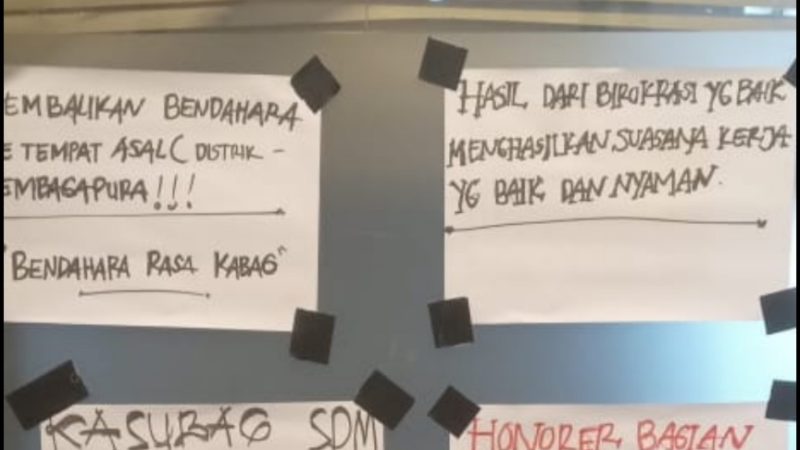 EMBALIKAN BENDAHARA
E TEMPAT ASAL ( DISTRIK -
EMBAGAPURA !!!
"BENDAHARA RASA KABAG"
HASIL DARI BIROKRASI YG BAIK
MENGHASILKAN SUASANA KERJA
YG BAIK DAN NYAMAN.
KASUBAG SDM
HONORER BAGIAN